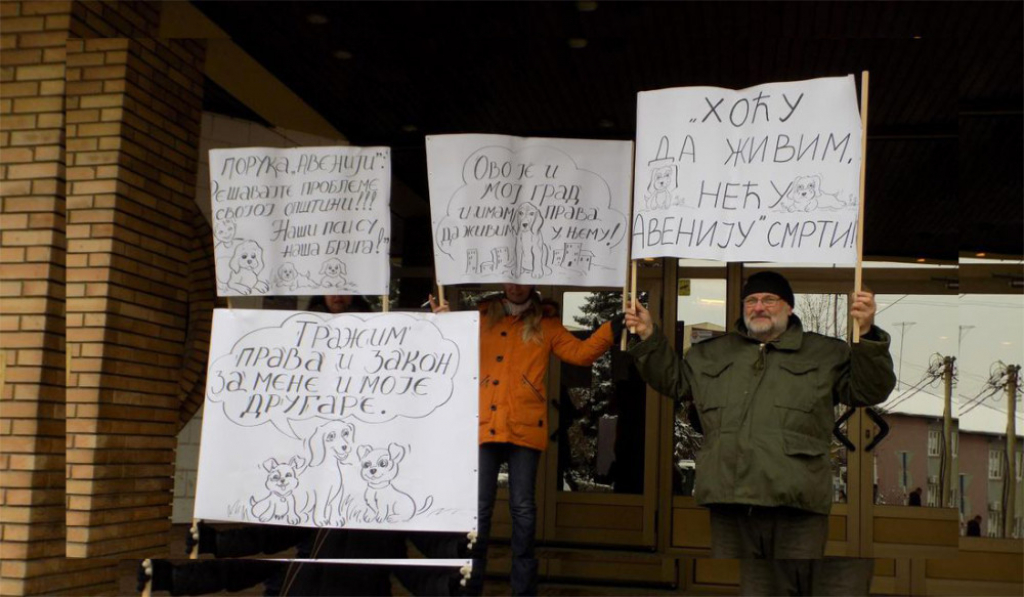 ПОРУКА „АВЕНИЈИ“:
РЕШАВАЈТЕ ПРОБЛЕМЕ
СВОЈОЈ ОПШТИНИ!!!
НАШИ ПСИ СУ
НАША БРИГА!"
ОВО ЈЕ И
МОЈ ГРАД
И ИМАМ ПРАВА
ДА ЖИВИМ У ЊЕМУ!
„ХОЋУ
ДА ЖИВИМ,
НЕЋУ
АВЕНИЈУ" СМРТИ!
ТРАЖИМ
ПРАВА И ЗАКОН
ЗА МЕНЕ И МОЈЕ
ДРУГАРЕ.